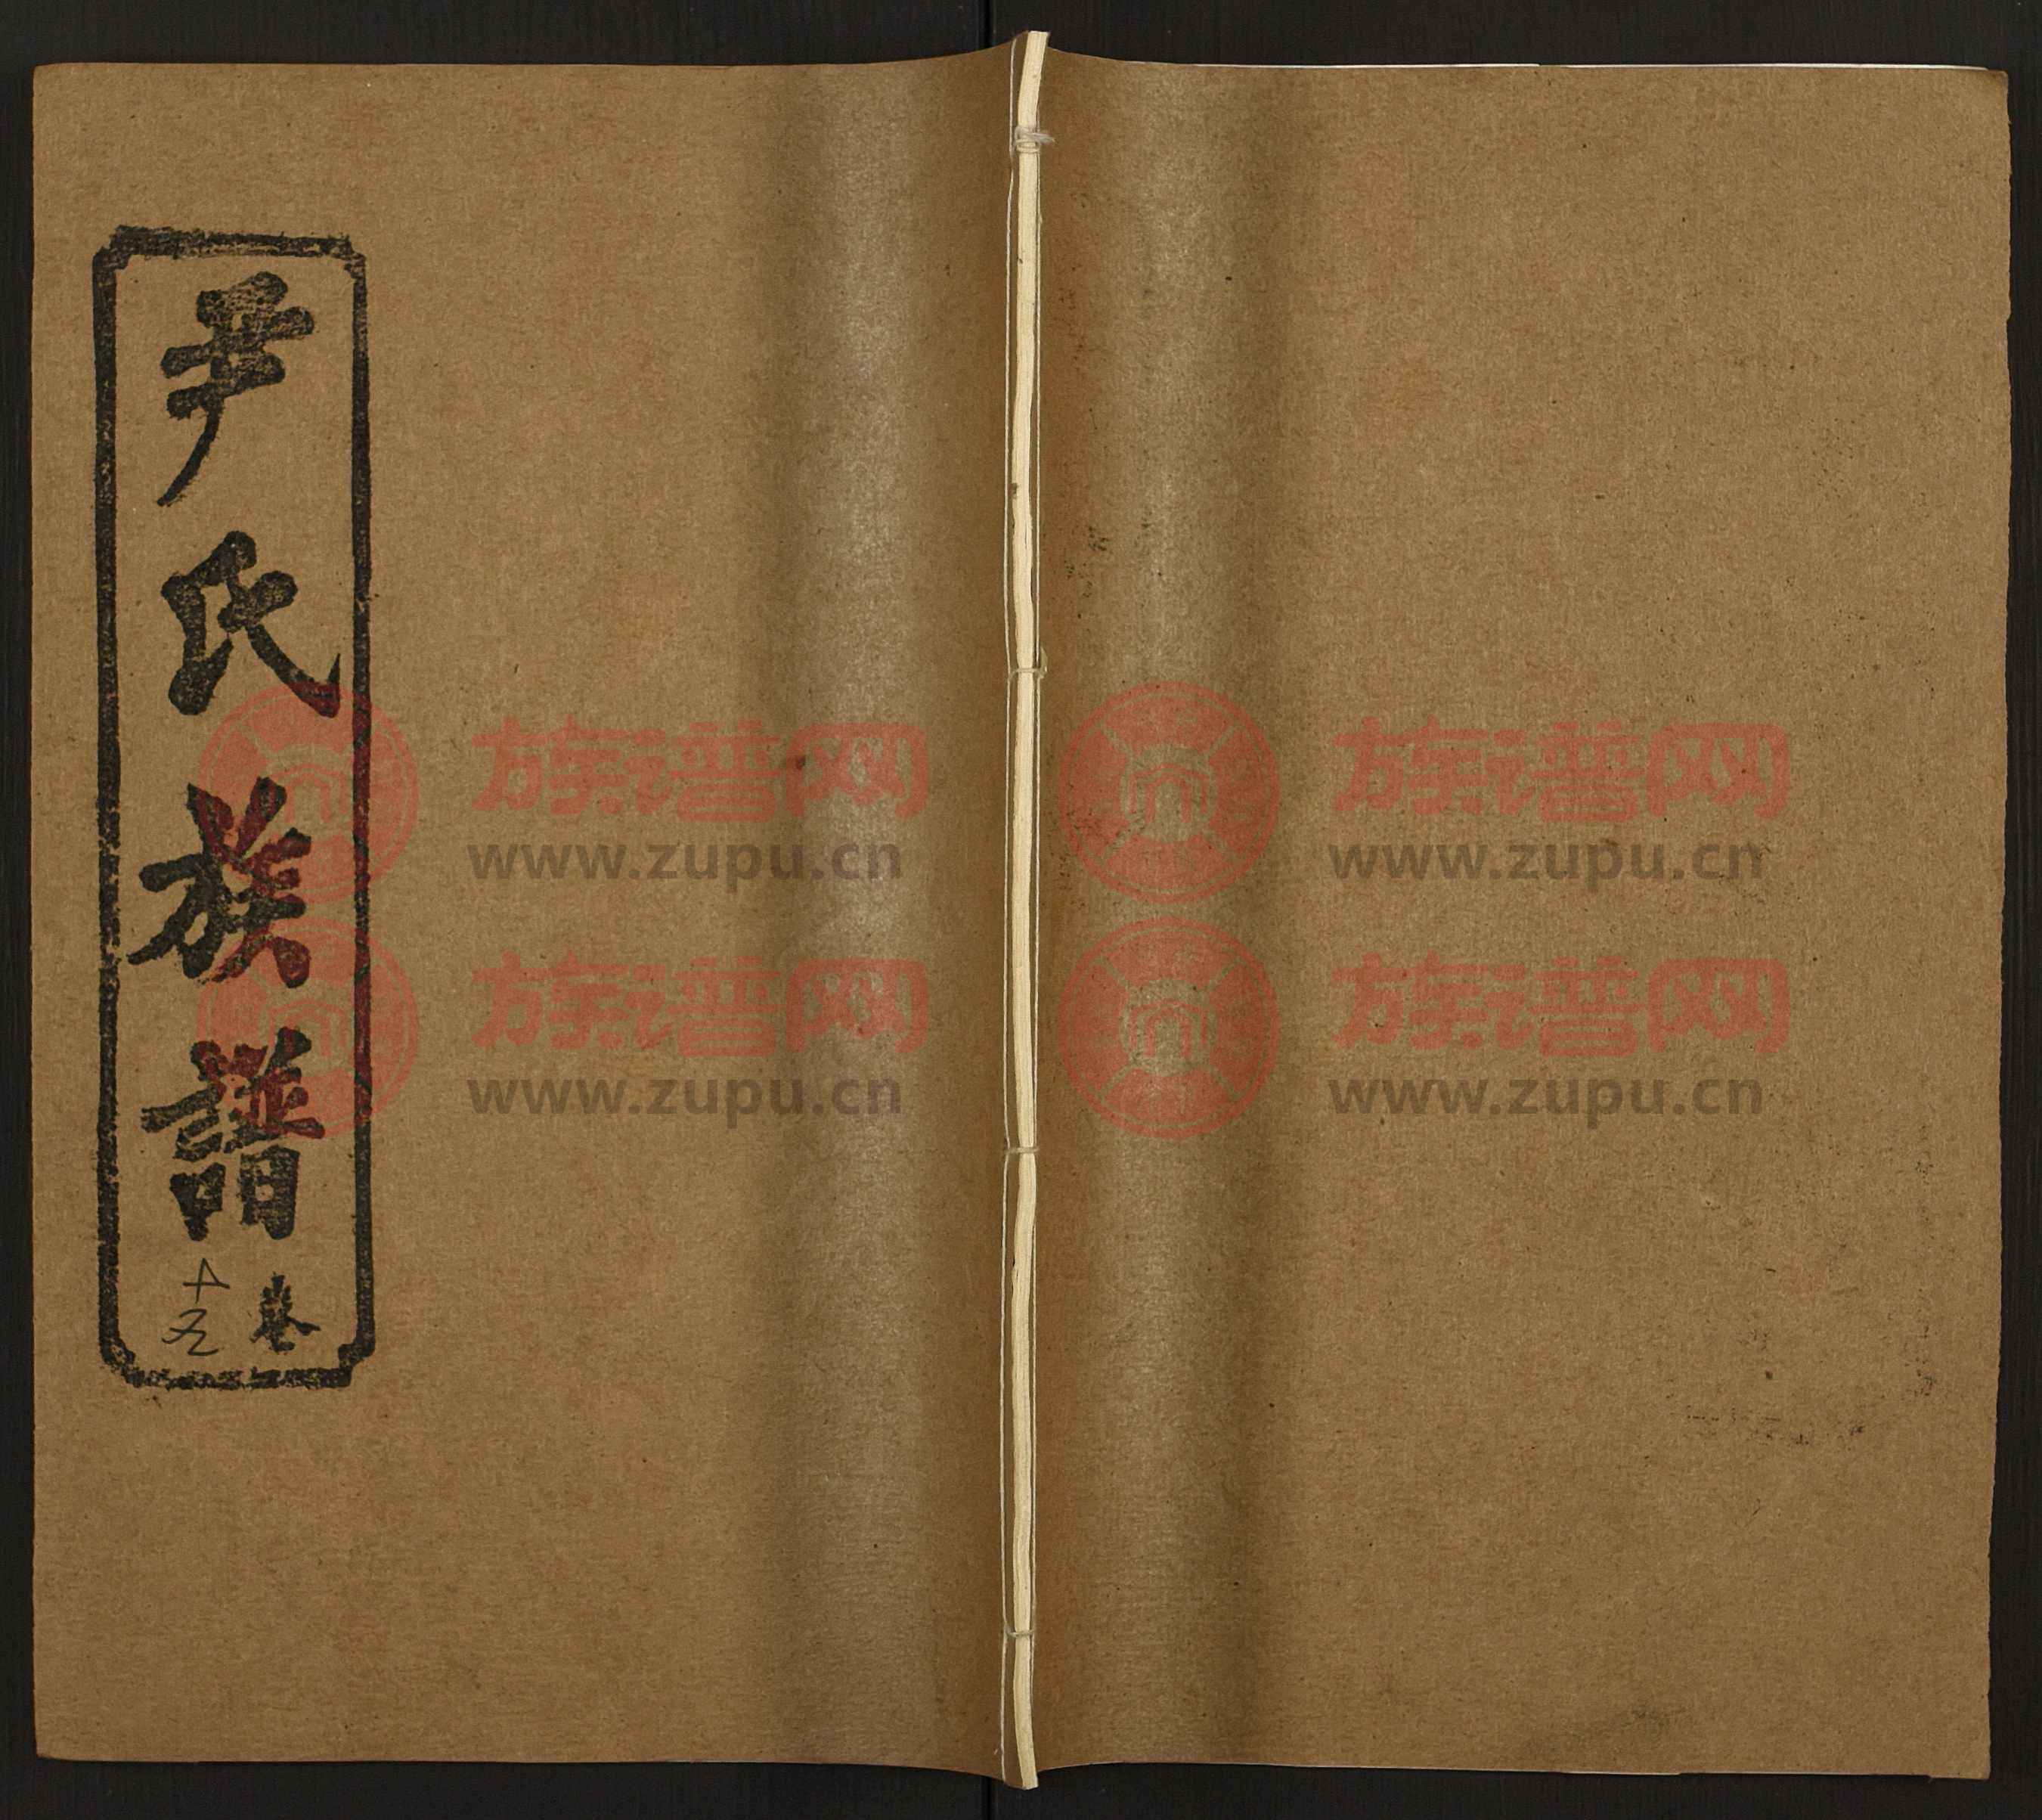 尹氏族譜
卷
十五
族谱网
www.zupu.cn
族谱网
www.zupu.cn
族谱网
www.zupu.cn
族谱网
www.zupu.cn